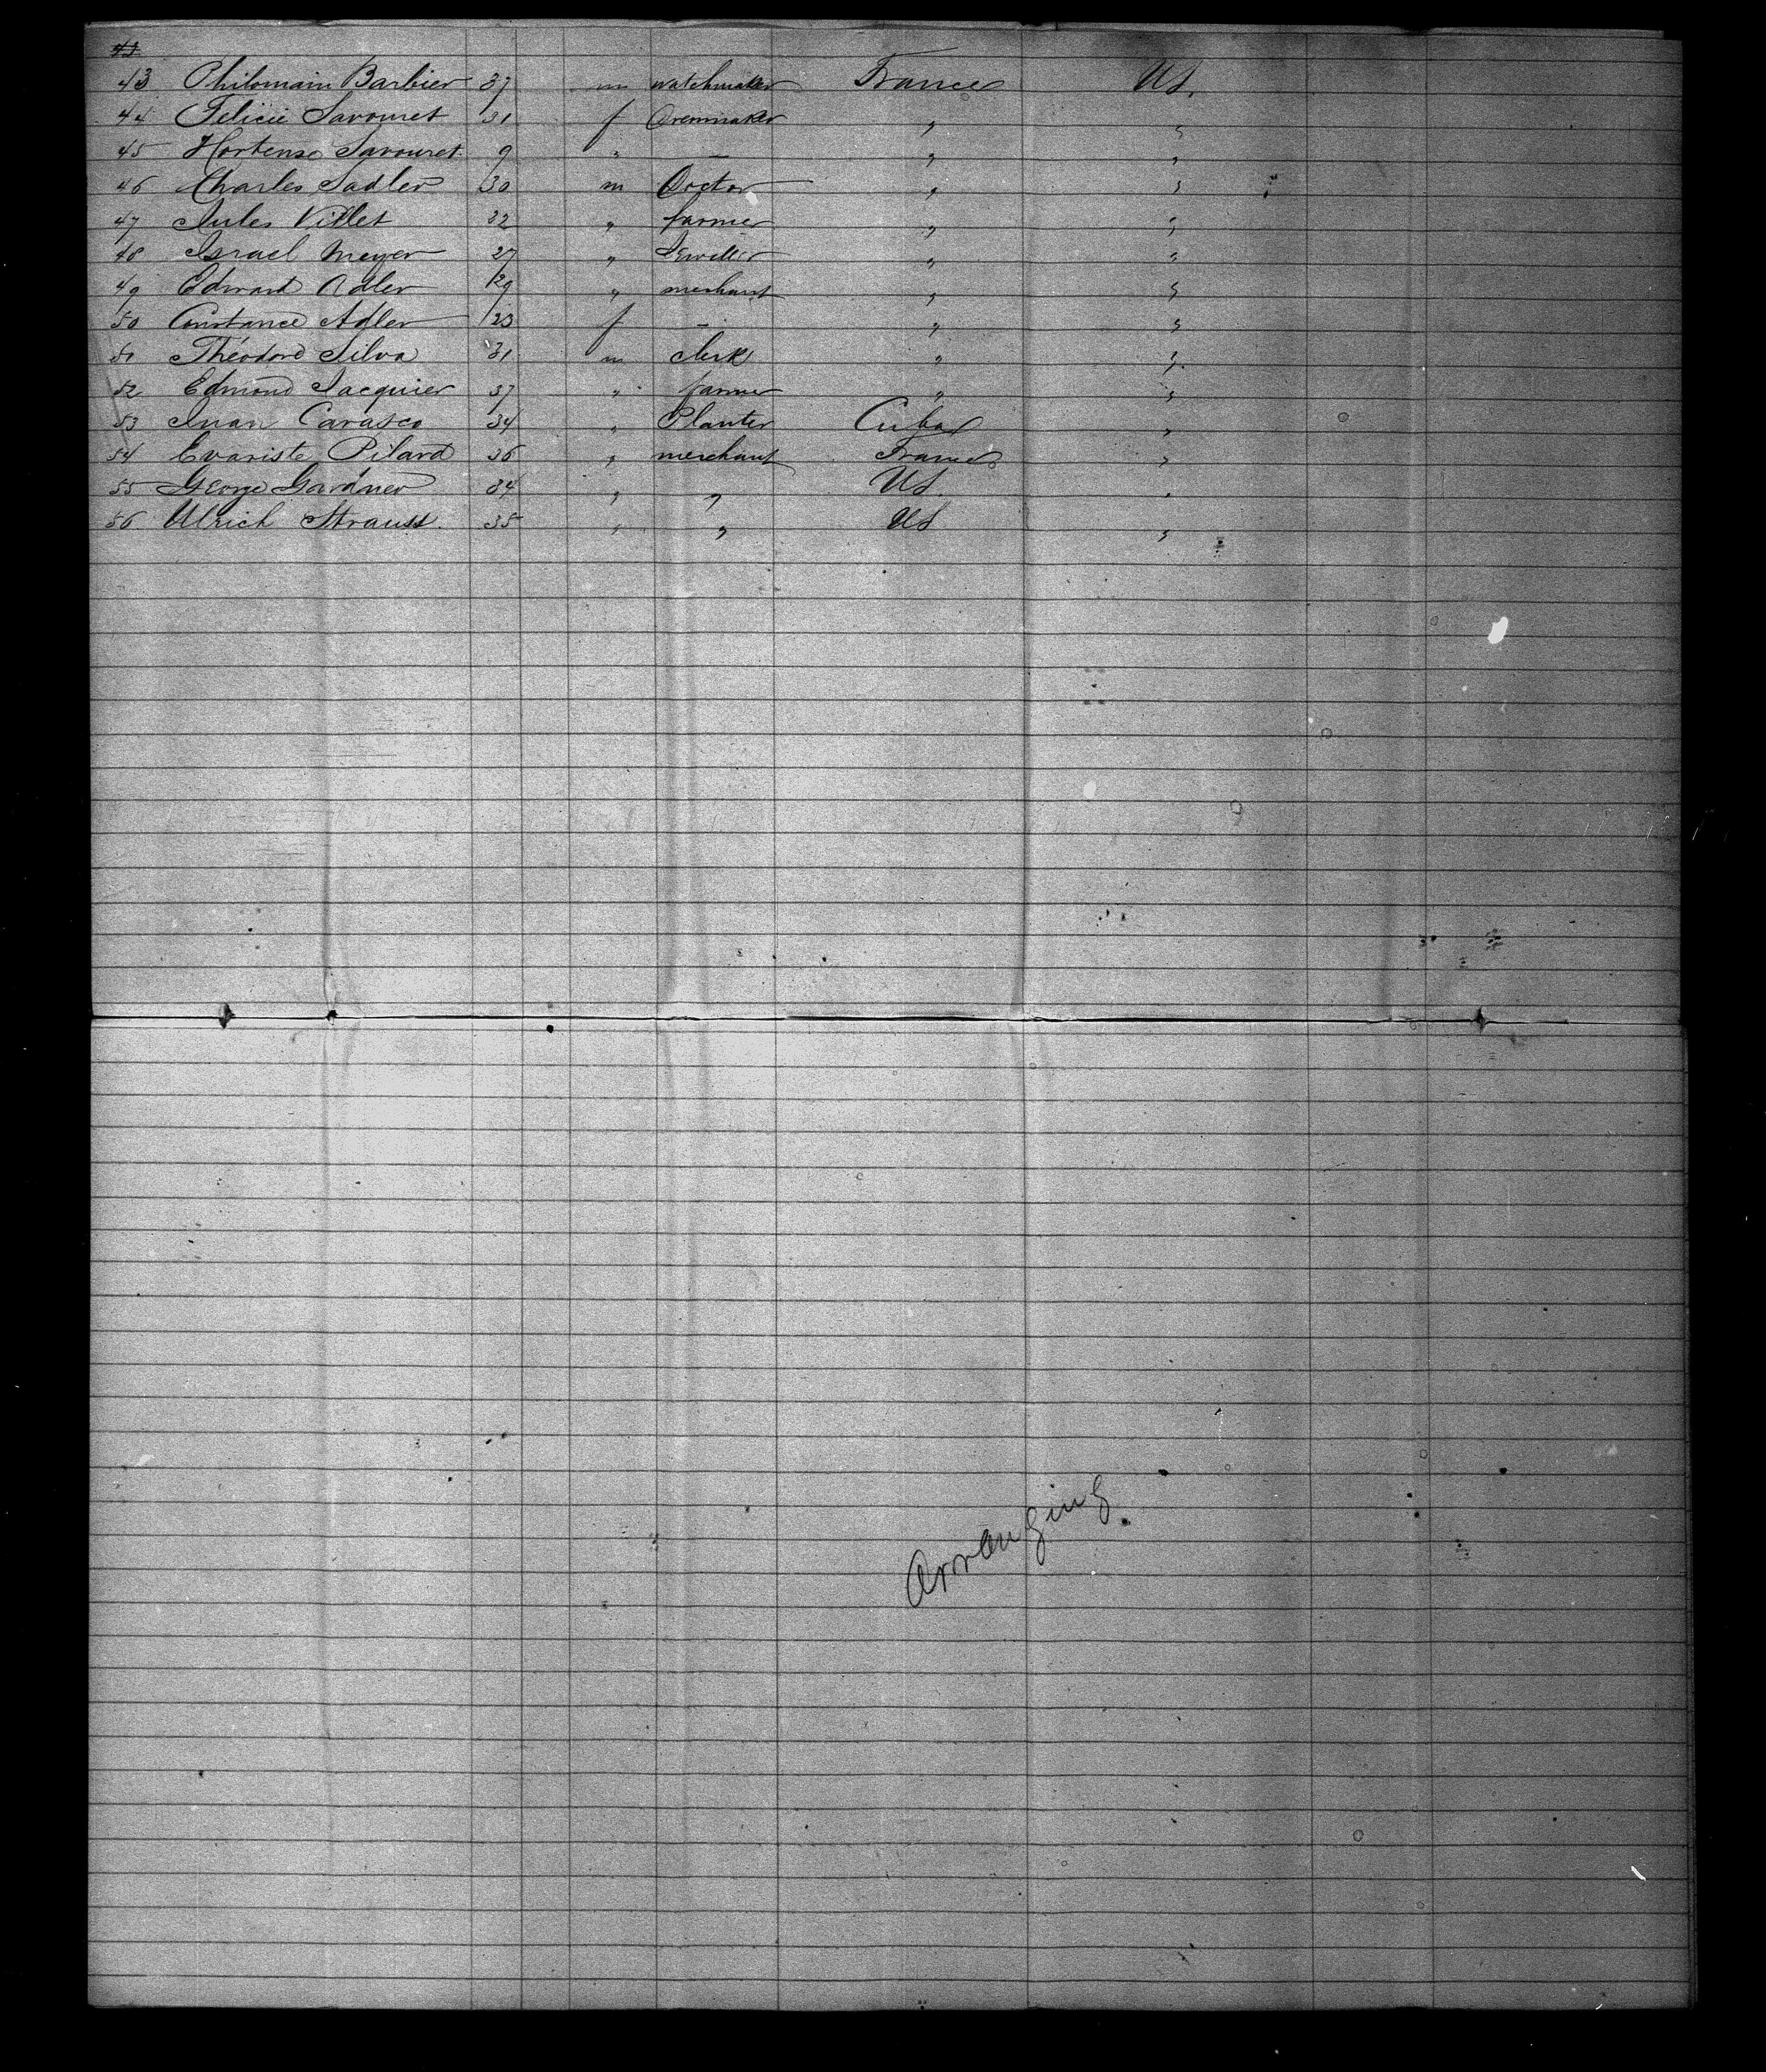 43 Philomain Barbier 37 m watchmaker France US.
44 Felicie Savouret 31 f Dressmaker " "
45 Hortense Savouret 9 " — " "
46 Charles Sadler 30 m Doctor " "
47 Jules Villet 32 " farmer " "
48 Israel Meyer 27 " Jeweller " "
49 Edward Adler 29 " merchant " "
50 Constance Adler 23 f — " "
51 Théodore Silva 31 m clerk " "
52 Edmond Jacquier 37 " farmer " "
53 Juan Carasco 34 " Planter Cuba "
54 Evariste Pilard 36 " merchant France "
55 George Gardner 34 " " US. "
56 Ulrich Strauss. 35 " " US "
Arranging.